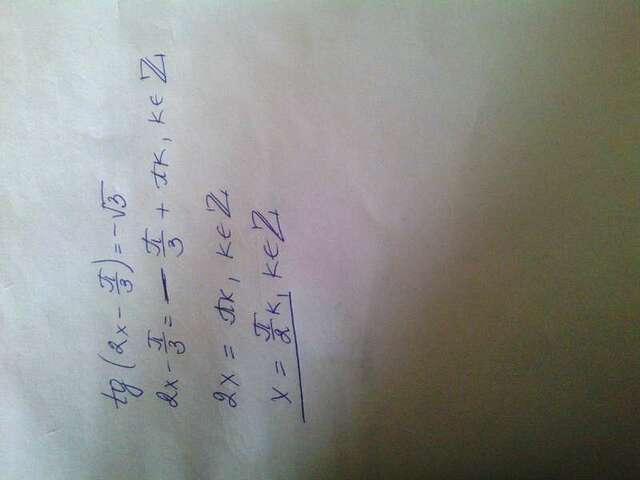 tg(2x - π/3) = -√3
2x - π/3 = - π/3 + πk, k∈Z
2x = πk, k∈Z
x = π/2 k, k∈Z